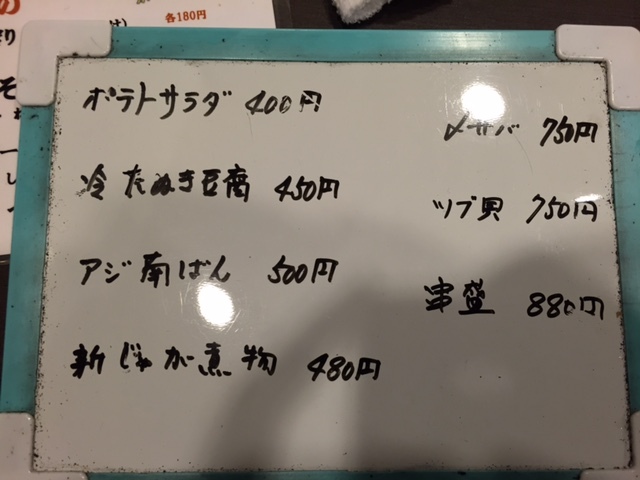 各180円
ポテトサラダ 400円
冷たぬき豆腐 450円
アジ南ばん 500円
新じゃが煮物 480円
〆サバ 750円
ツブ貝 750円
串盛 880円